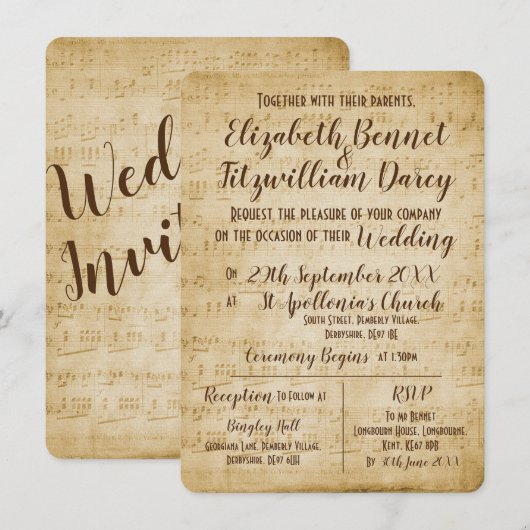 Wed
Invit
Together with their parents,
Elizabeth Bennet
&
Fitzwilliam Darcy
Request the pleasure of your company
on the occasion of their Wedding
on 29th September 20XX
at St Apollonia's Church
South Street, Pemberly Village,
Derbyshire, DE97 1BE
Ceremony Begins at 1.30pm
Reception To Follow at
Bingley Hall
Georgiana Lane, Pemberly Village,
Derbyshire, DE97 6UH
RSVP
To Mr Bennet
Longbourn House, Longbourne,
Kent, KE67 8PB
By 30th June 20XX